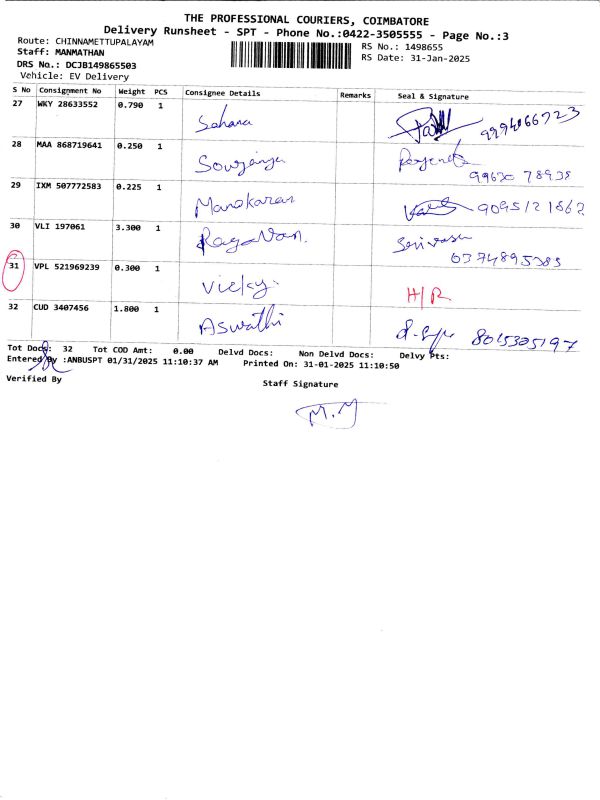 THE PROFESSIONAL COURIERS, COIMBATORE
Delivery Runsheet - SPT - Phone No.:0422-3505555 - Page No.:3
Route: CHINNAMETTUPALAYAM
RS No.: 1498655
Staff: MANMATHAN
RS Date: 31-Jan-2025
DRS No.: DCJB149865503
Vehicle: EV Delivery
S No Consignment No Weight PCS Consignee Details Remarks Seal & Signature
27 WKY 28633552 0.790 1 Sahana
28 MAA 868719641 0.250 1 Sowjanya
29 IXM 507772583 0.225 1 Manokaran
30 VLI 197061 3.300 1 Ragavan.
31 VPL 521969239 0.300 1 Vicky. H/R
32 CUD 3407456 1.800 1 Aswathi 8015305197
Tot Docs: 32 Tot COD Amt: 0.00 Delvd Docs: Non Delvd Docs: Delvy Pts:
Entered By :ANBUSPT 01/31/2025 11:10:37 AM Printed On: 31-01-2025 11:10:50
Verified By
Staff Signature
M.M